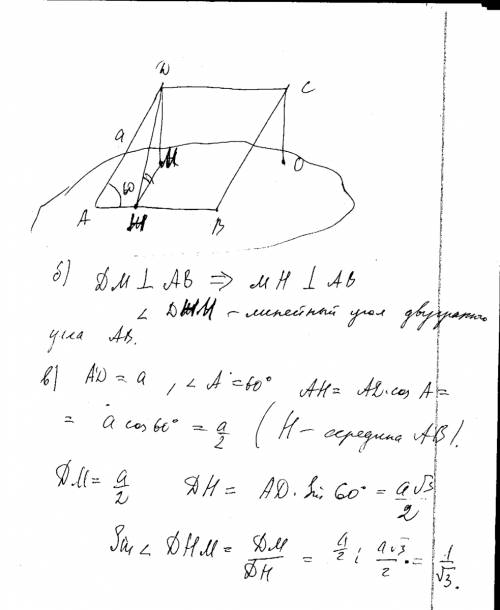 D
C
a
60
M
O
A
H
B
б) DM ⊥ AB ⇒ MH ⊥ AB
∠ DHM – линейный угол двугранного
угла AB.
в) AD = a , ∠ A = 60° AH = AD·cos A =
= a cos 60° = a/2 ( H – середина AB ).
DM = a/2 DH = AD · Sin 60° = a√3/2
Sin ∠ DHM = DM/DH = a/2 : a√3/2 = 1/√3.